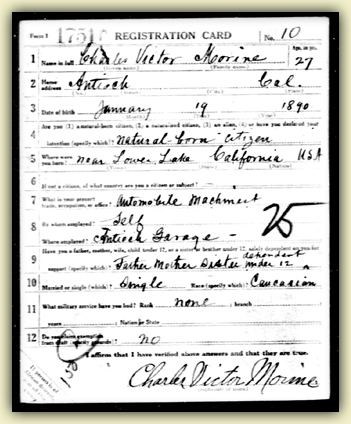 Form 1 1751 REGISTRATION CARD No. 10
1 Name in full Charles Victor Morine Age, in yrs. 27
(Family name)
2 Home address Antioch Cal.
3 Date of birth January 19 1890
Are you (1) a natural-born citizen, (2) a naturalized citizen, (3) an alien, (4) or have you declared your
4 intention (specify which)? Natural born citizen
5 Where were you born? near Lower Lake California USA
6 If not a citizen, of what country are you a citizen or subject?
7 What is your present trade, occupation, or office? Automobile Machinest 25
8 By whom employed? Self
Where employed? Antioch Garage
9 Have you a father, mother, wife, child under 12, or a sister or brother under 12, solely dependent on you for
support (specify which)? Father Mother Sister dependent under 12
10 Married or single (which)? Single Race (specify which)? Caucasian
11 What military service have you had? Rank none ; branch
years Nation or State
12 Do you claim exemption from draft (specify grounds)? no
I affirm that I have verified above answers and that they are true.
Charles Victor Morine